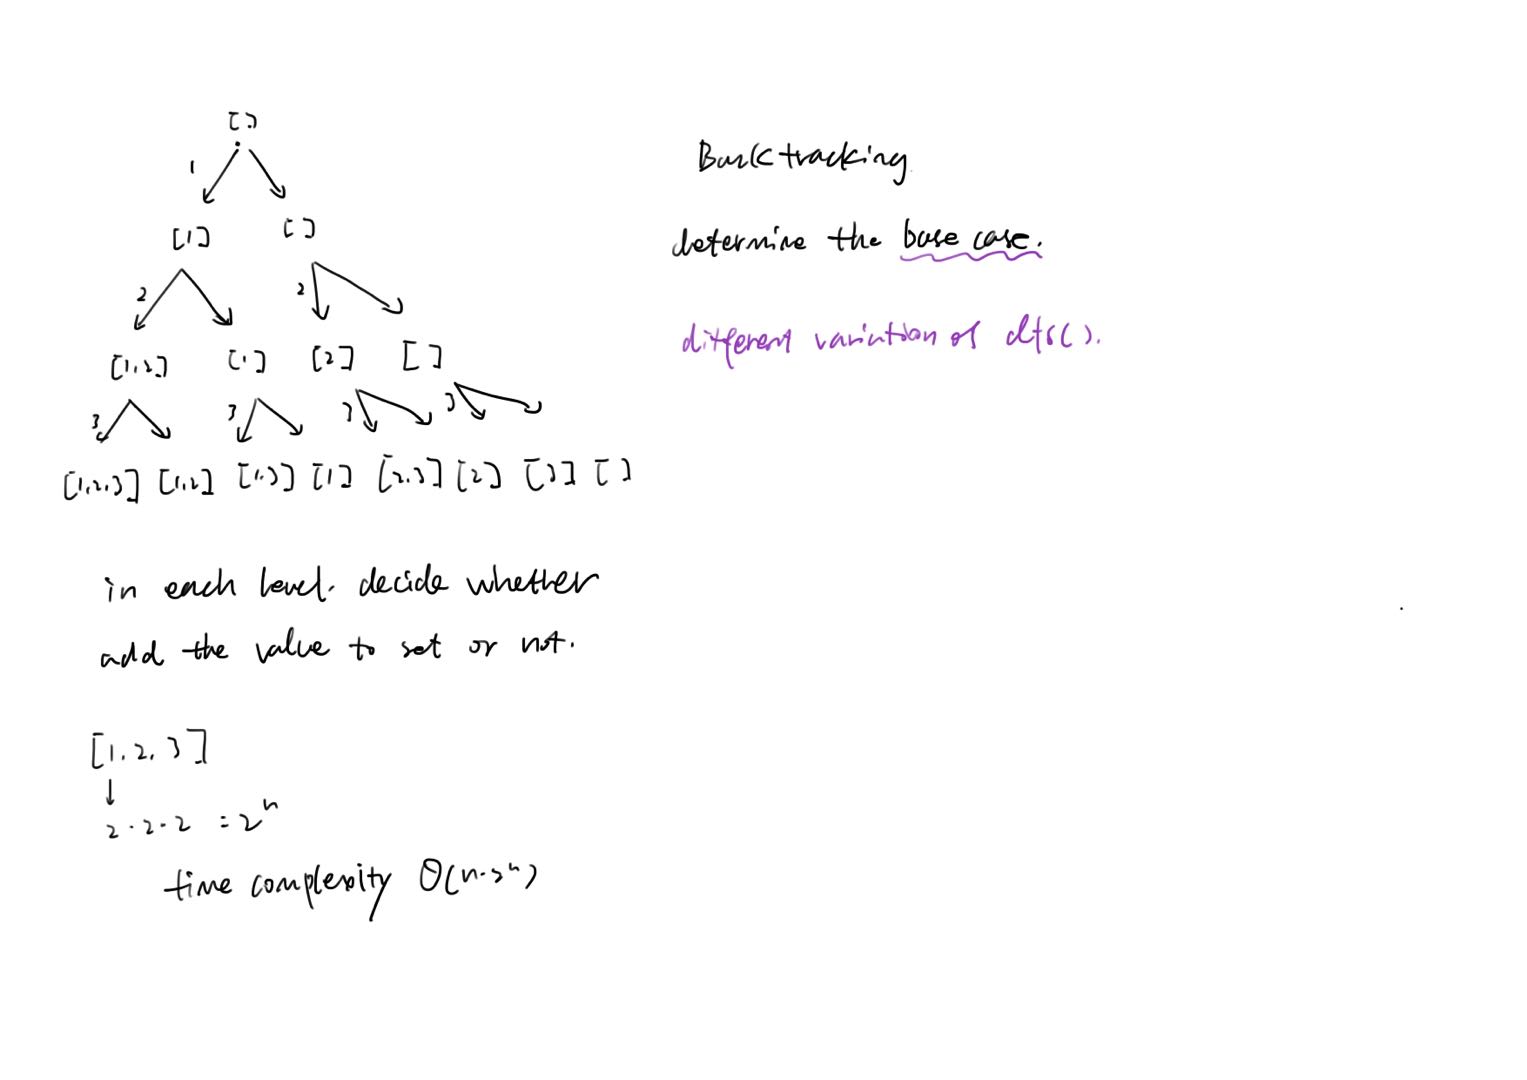 [ ]
1
[1] [ ]
2 2
[1,2] [1] [2] [ ]
3 3 3 3
[1,2,3] [1,2] [1,3] [1] [2,3] [2] [3] [ ]
in each level. decide whether
add the value to set or not.
[1, 2, 3]
2 · 2 · 2 = 2^n
time complexity O(n·2^n)
Backtracking
determine the base case.
different variation of dfs().